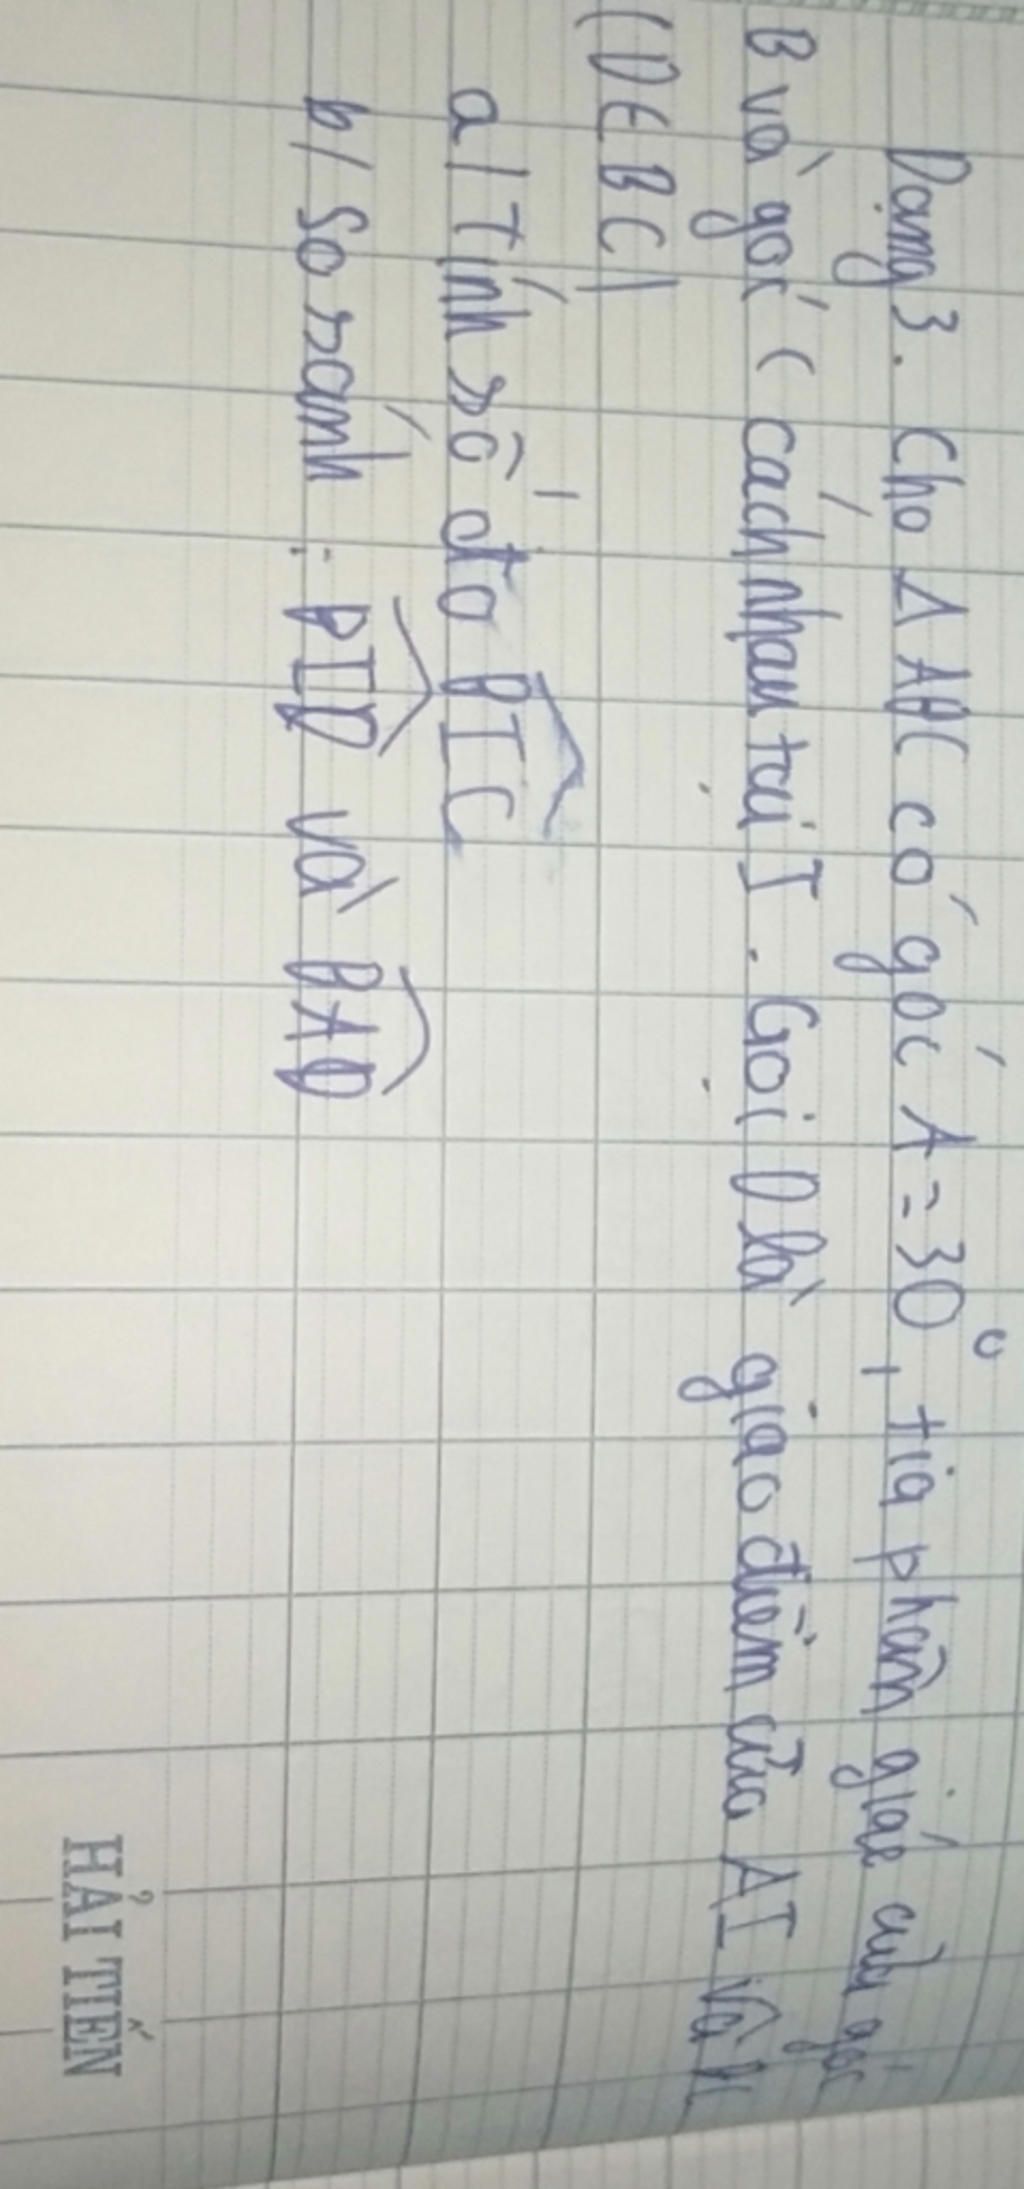 Dạng 3. Cho Δ ABC có góc A = 30°, tia phân giác của góc
B và góc C cách nhau tại I. Gọi D là giao điểm của AI và BC
(D ∈ BC)
a/ Tính số đo BIC
b/ So sánh : BID và BAD
HẢI TIẾN